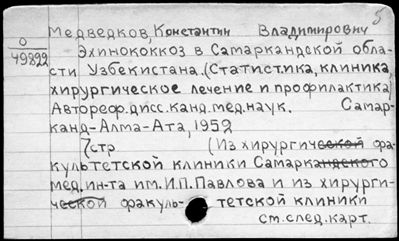 5
Медведков, Константин Владимирович
О
49822
Эхинококкоз в Самаркандской обла-
сти Узбекистана. (Статистика, клиника,
хирургическое лечение и профилактика)
Автореф. дисс. канд. мед. наук. Самар-
канд-Алма-Ата, 1952
7стр (Из хирургической фа-
культетской клиники Самаркандского
мед. ин-та им. И.П. Павлова и из хирурги-
ческой факуль- тетской клиники
см. след. карт.